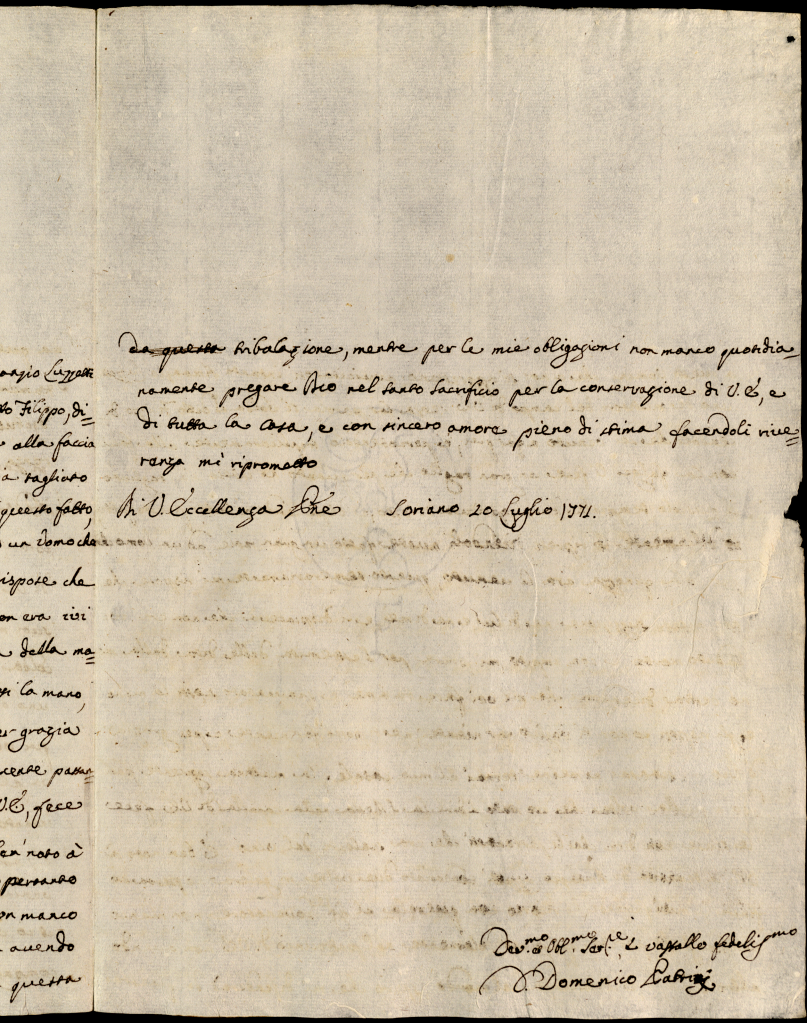 angio Luzzetti
to Filippo, di=
alla faccia
a tagliato
questo fatto,
un Uomo che
rispose che
on era ivi
della ma=
la mano,
er grazia
V. E., fece
noto à
pertanto
on manco
avendo
questa
da questa tribulazione, mentre per le mie obligazioni non manco quotidia=
namente pregare Dio nel santo Sacrificio per la conservazione di V. E., e
di tutta la Casa, e con sincero amore pieno di stima facendoli rive=
renza mi ripromatto
Di V. Eccellenza Pne Soriano 20 Luglio 1771.
Dev.mo et Obl.mo Ser.re, e vassallo fedelis.mo
D. Domenico Patrizi